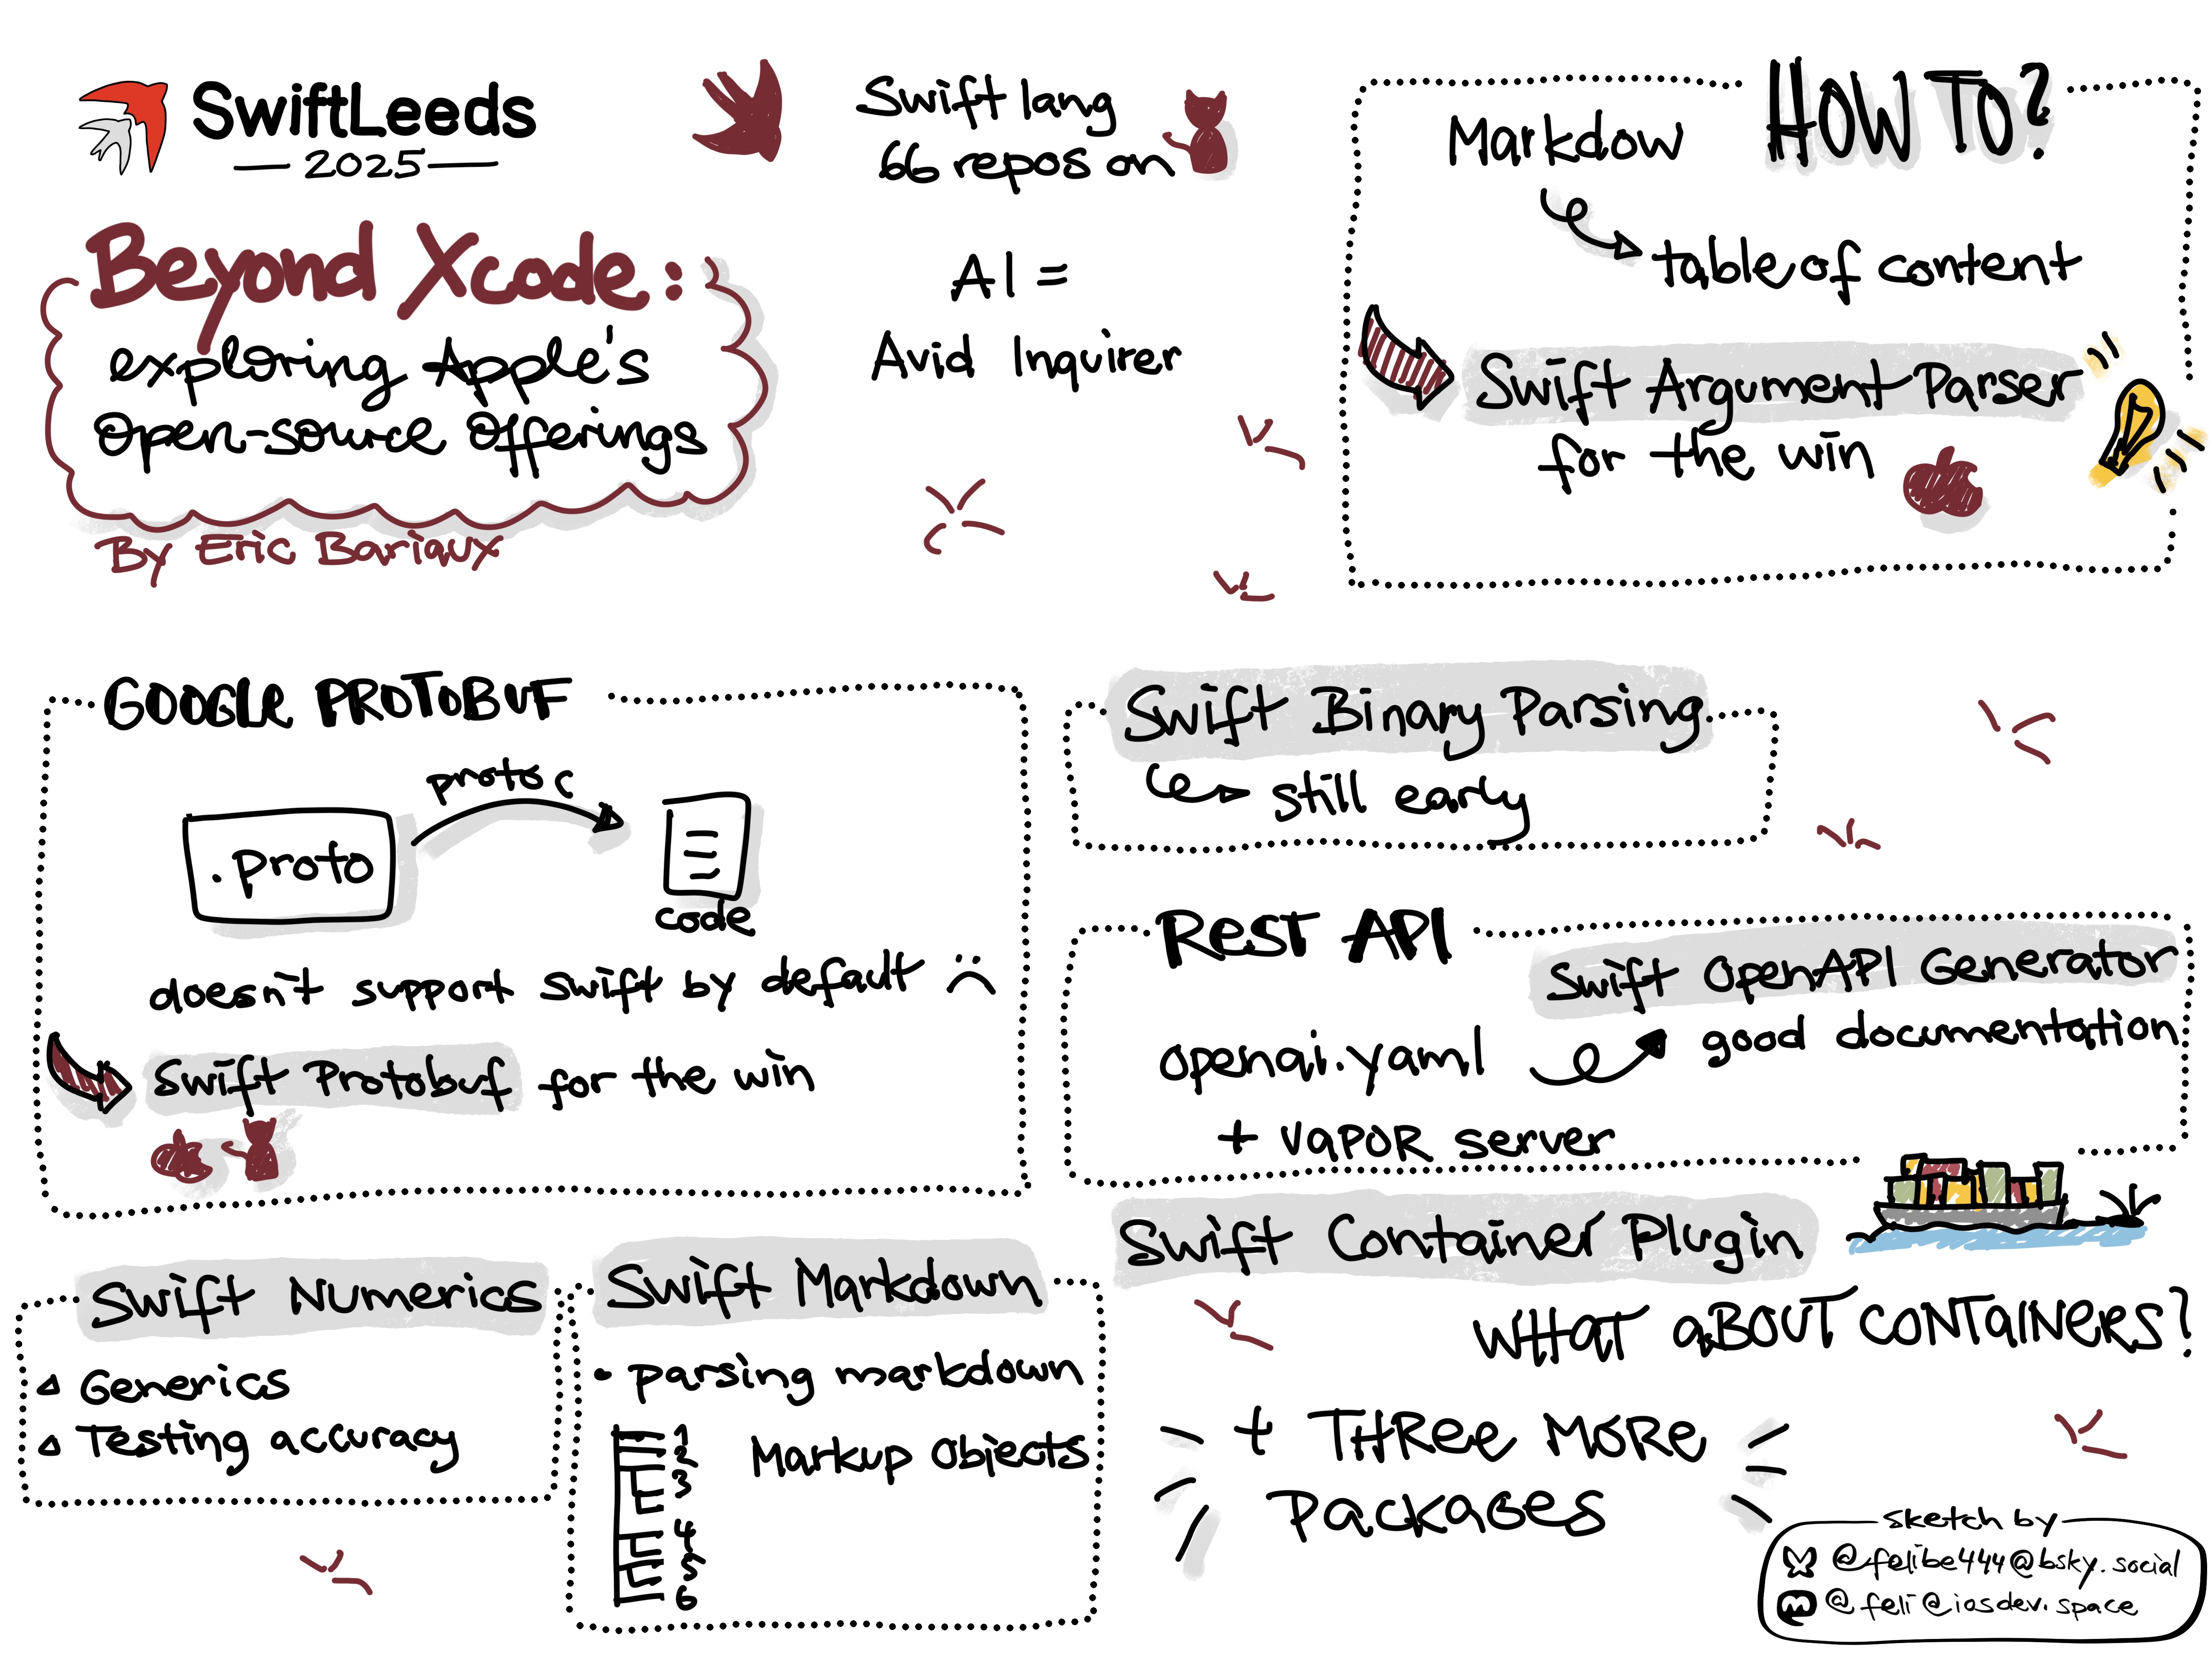 SwiftLeeds
2025
Beyond Xcode:
exploring Apple's
open-source offerings
By Eric Bariaux
Swift lang
66 repos on
AI =
Avid Inquirer
HOW TO?
Markdow
table of content
Swift Argument Parser
for the win
GOOGLE PROTOBUF
protoc
.proto
code
doesn't support Swift by default :(
Swift Protobuf for the win
Swift Binary Parsing
still early
REST API
Swift OpenAPI Generator
good documentation
openai.yaml
+ VAPOR server
Swift Numerics
Generics
Testing accuracy
Swift Markdown
• parsing markdown
1
2
3
4
5
6
Markup Objects
Swift Container Plugin
WHAT ABOUT CONTAINERS?
+ THREE MORE
PACKAGES
sketch by
@felibe444@bsky.social
@feli@iosdev.space